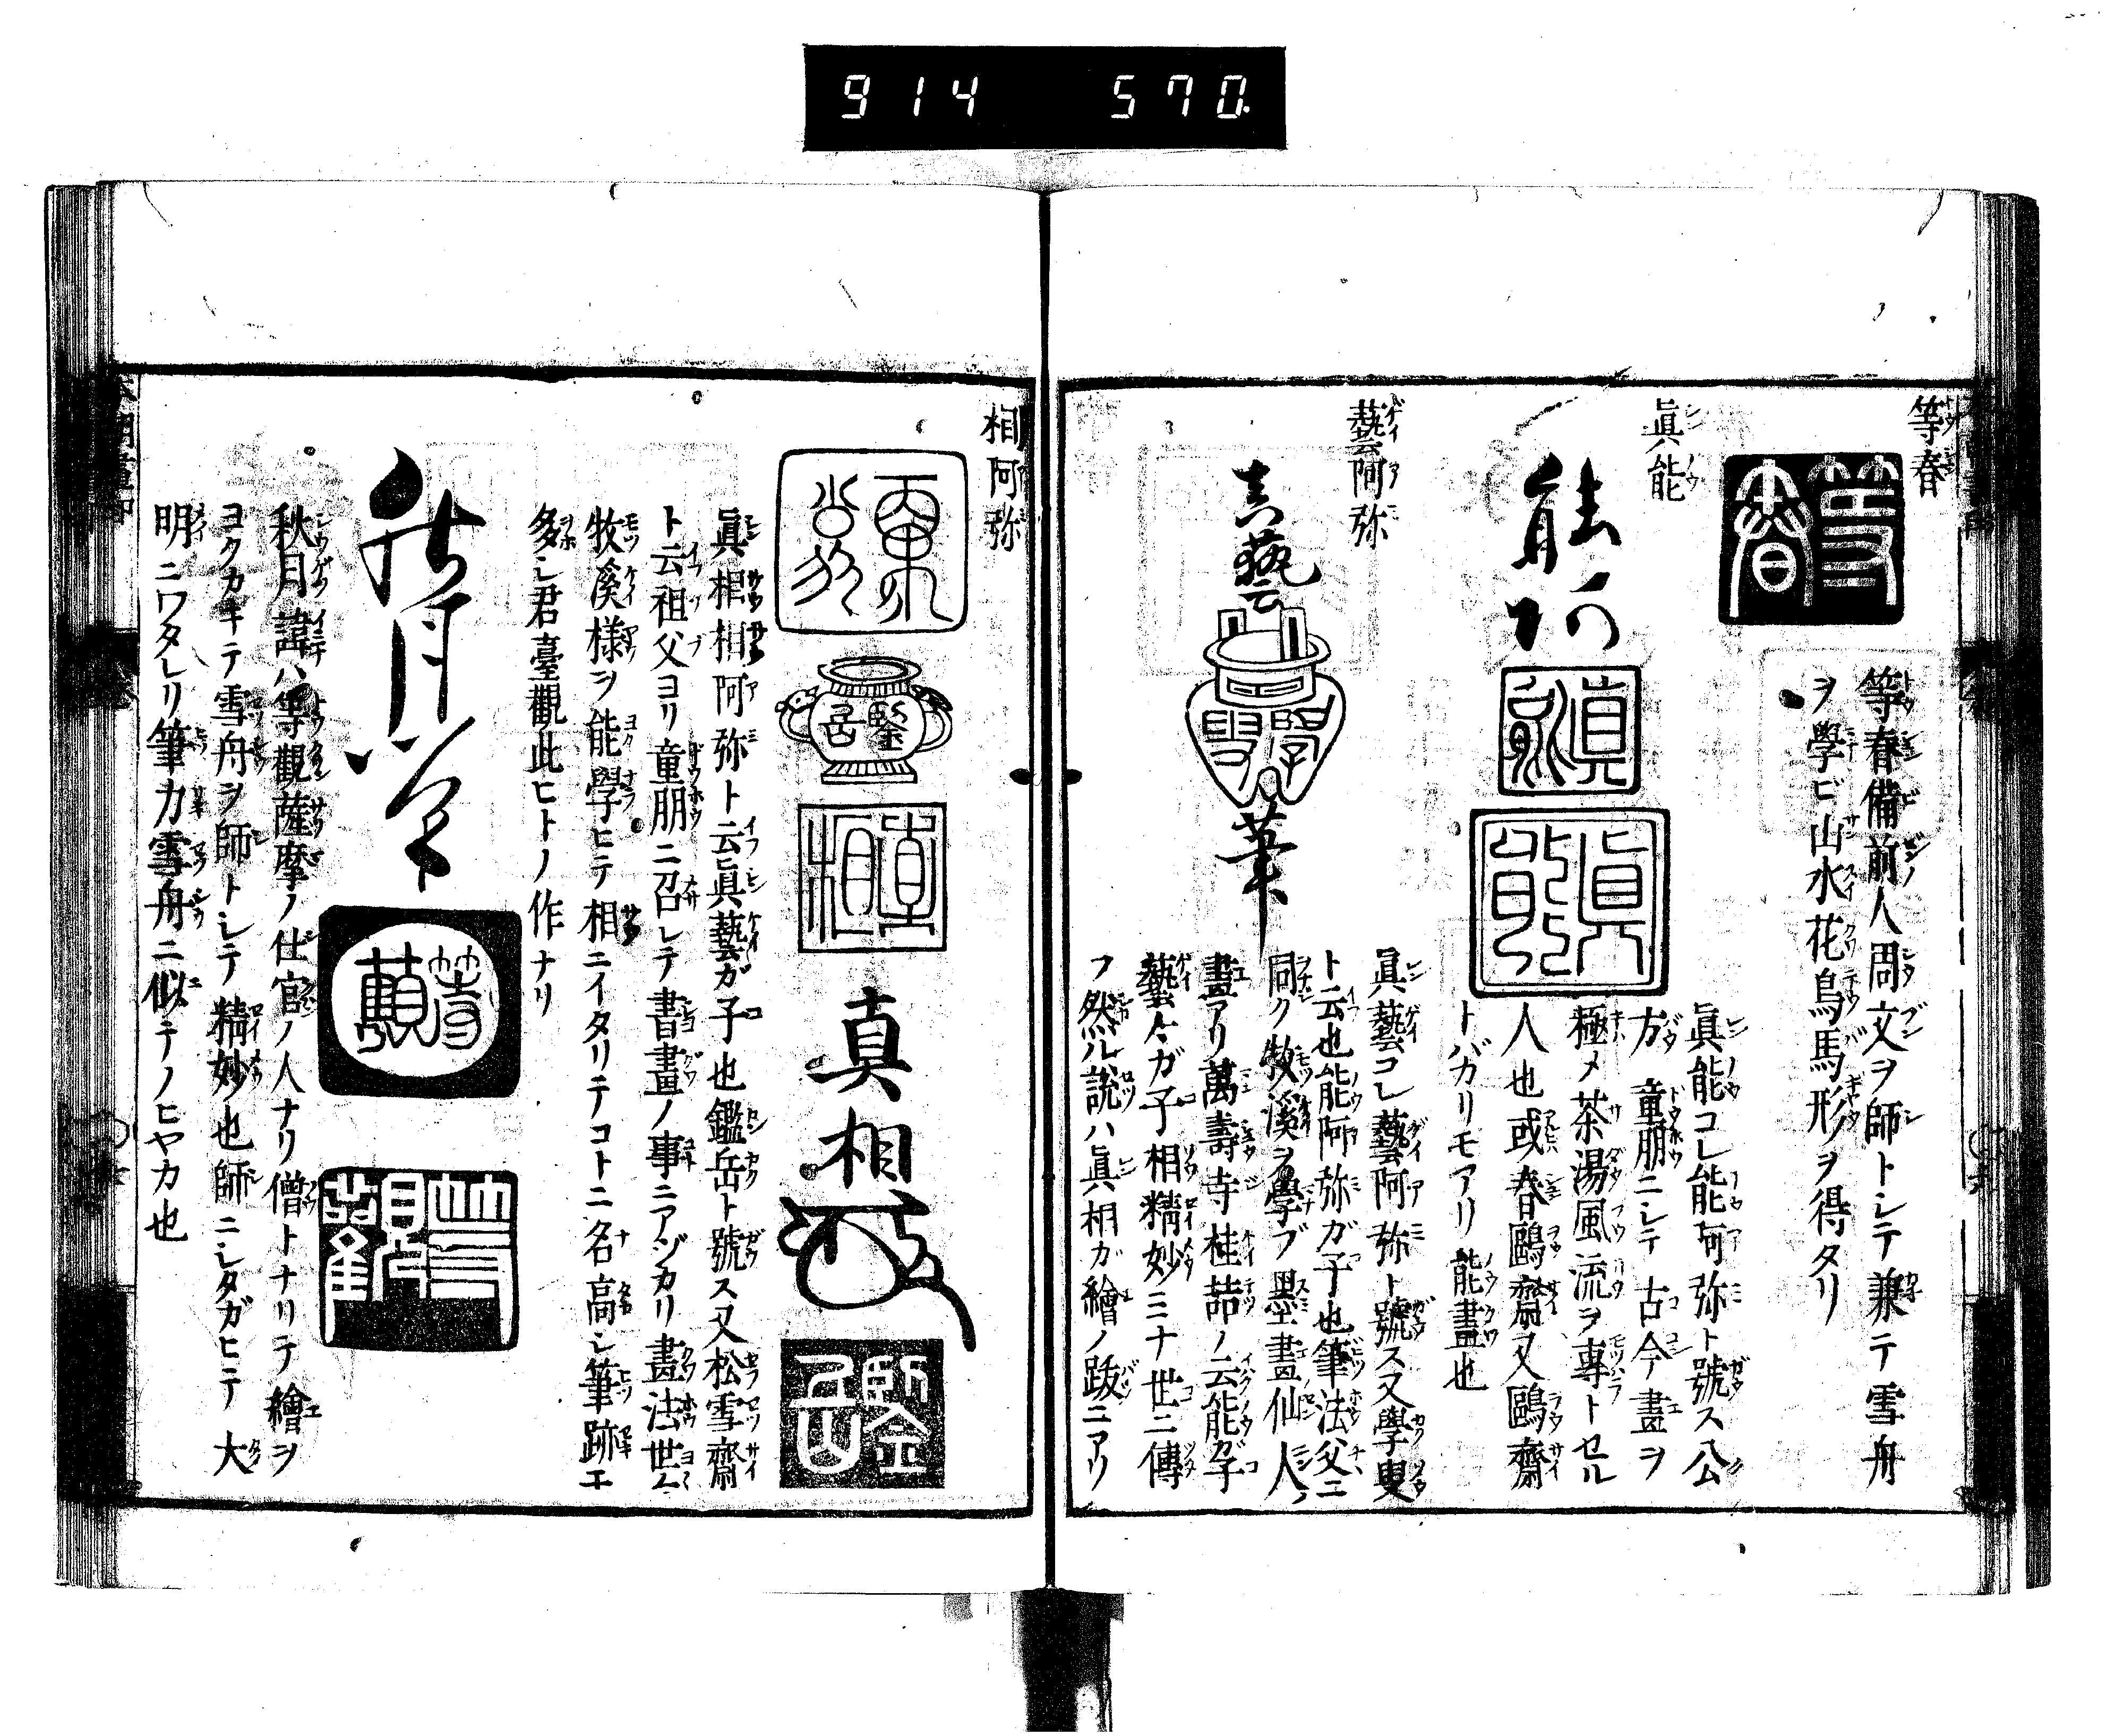 914 570
等春
等春
等春備前人周文ヲ師トシテ兼テ雪舟
ヲ學ビ山水花鳥馬形ヲ得タリ
眞能
能阿
眞能
眞能コレ能阿弥ト號ス公
方童朋ニシテ古今畫ヲ
極メ茶湯風流ヲ專トセル
人也或春鷗齋又鷗齋
トバカリモアリ能畫也
藝阿弥
真藝
學叟
筆
眞藝コレ藝阿弥ト號ス又學叟
ト云也能阿弥ガ子也筆法父ニ
同ク牧溪ヲ學ブ墨畫仙人ノ
畫アリ萬壽寺桂喆ノ云能ガ子
藝々ガ子相精妙ミナ世ニ傳
フ然ル説ハ眞相ガ繪ノ跋ニアリ
相阿弥
鑒岳
真相
眞相相阿弥ト云眞藝ガ子也鑑岳ト號ス又松雪齋
ト云祖父ヨリ童朋ニ召レテ書畫ノ事ニアヅカリ畫法世々
牧溪様ヲ能學ヒテ相ニイタリテコトニ名高シ筆跡エ
多シ君臺觀此ヒトノ作ナリ
秋月筆
等觀
秋月諱ハ等觀薩摩ノ仕官ノ人ナリ僧トナリテ繪ヲ
ヨクカキテ雪舟ヲ師トシテ精妙也師ニシタガヒテ大
明ニワタレリ筆力雪舟ニ似テノヒヤカ也